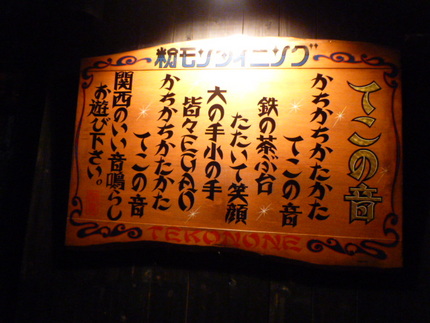 粉モンダイニング
てこの音
かちかちかたかた
てこの音
鉄の茶ぶ台
たたいて笑顔
大の手小の手
皆々EGAO
かちかちかたかた
てこの音
関西のいい音鳴らし
お遊び下さい。
TEKONONE